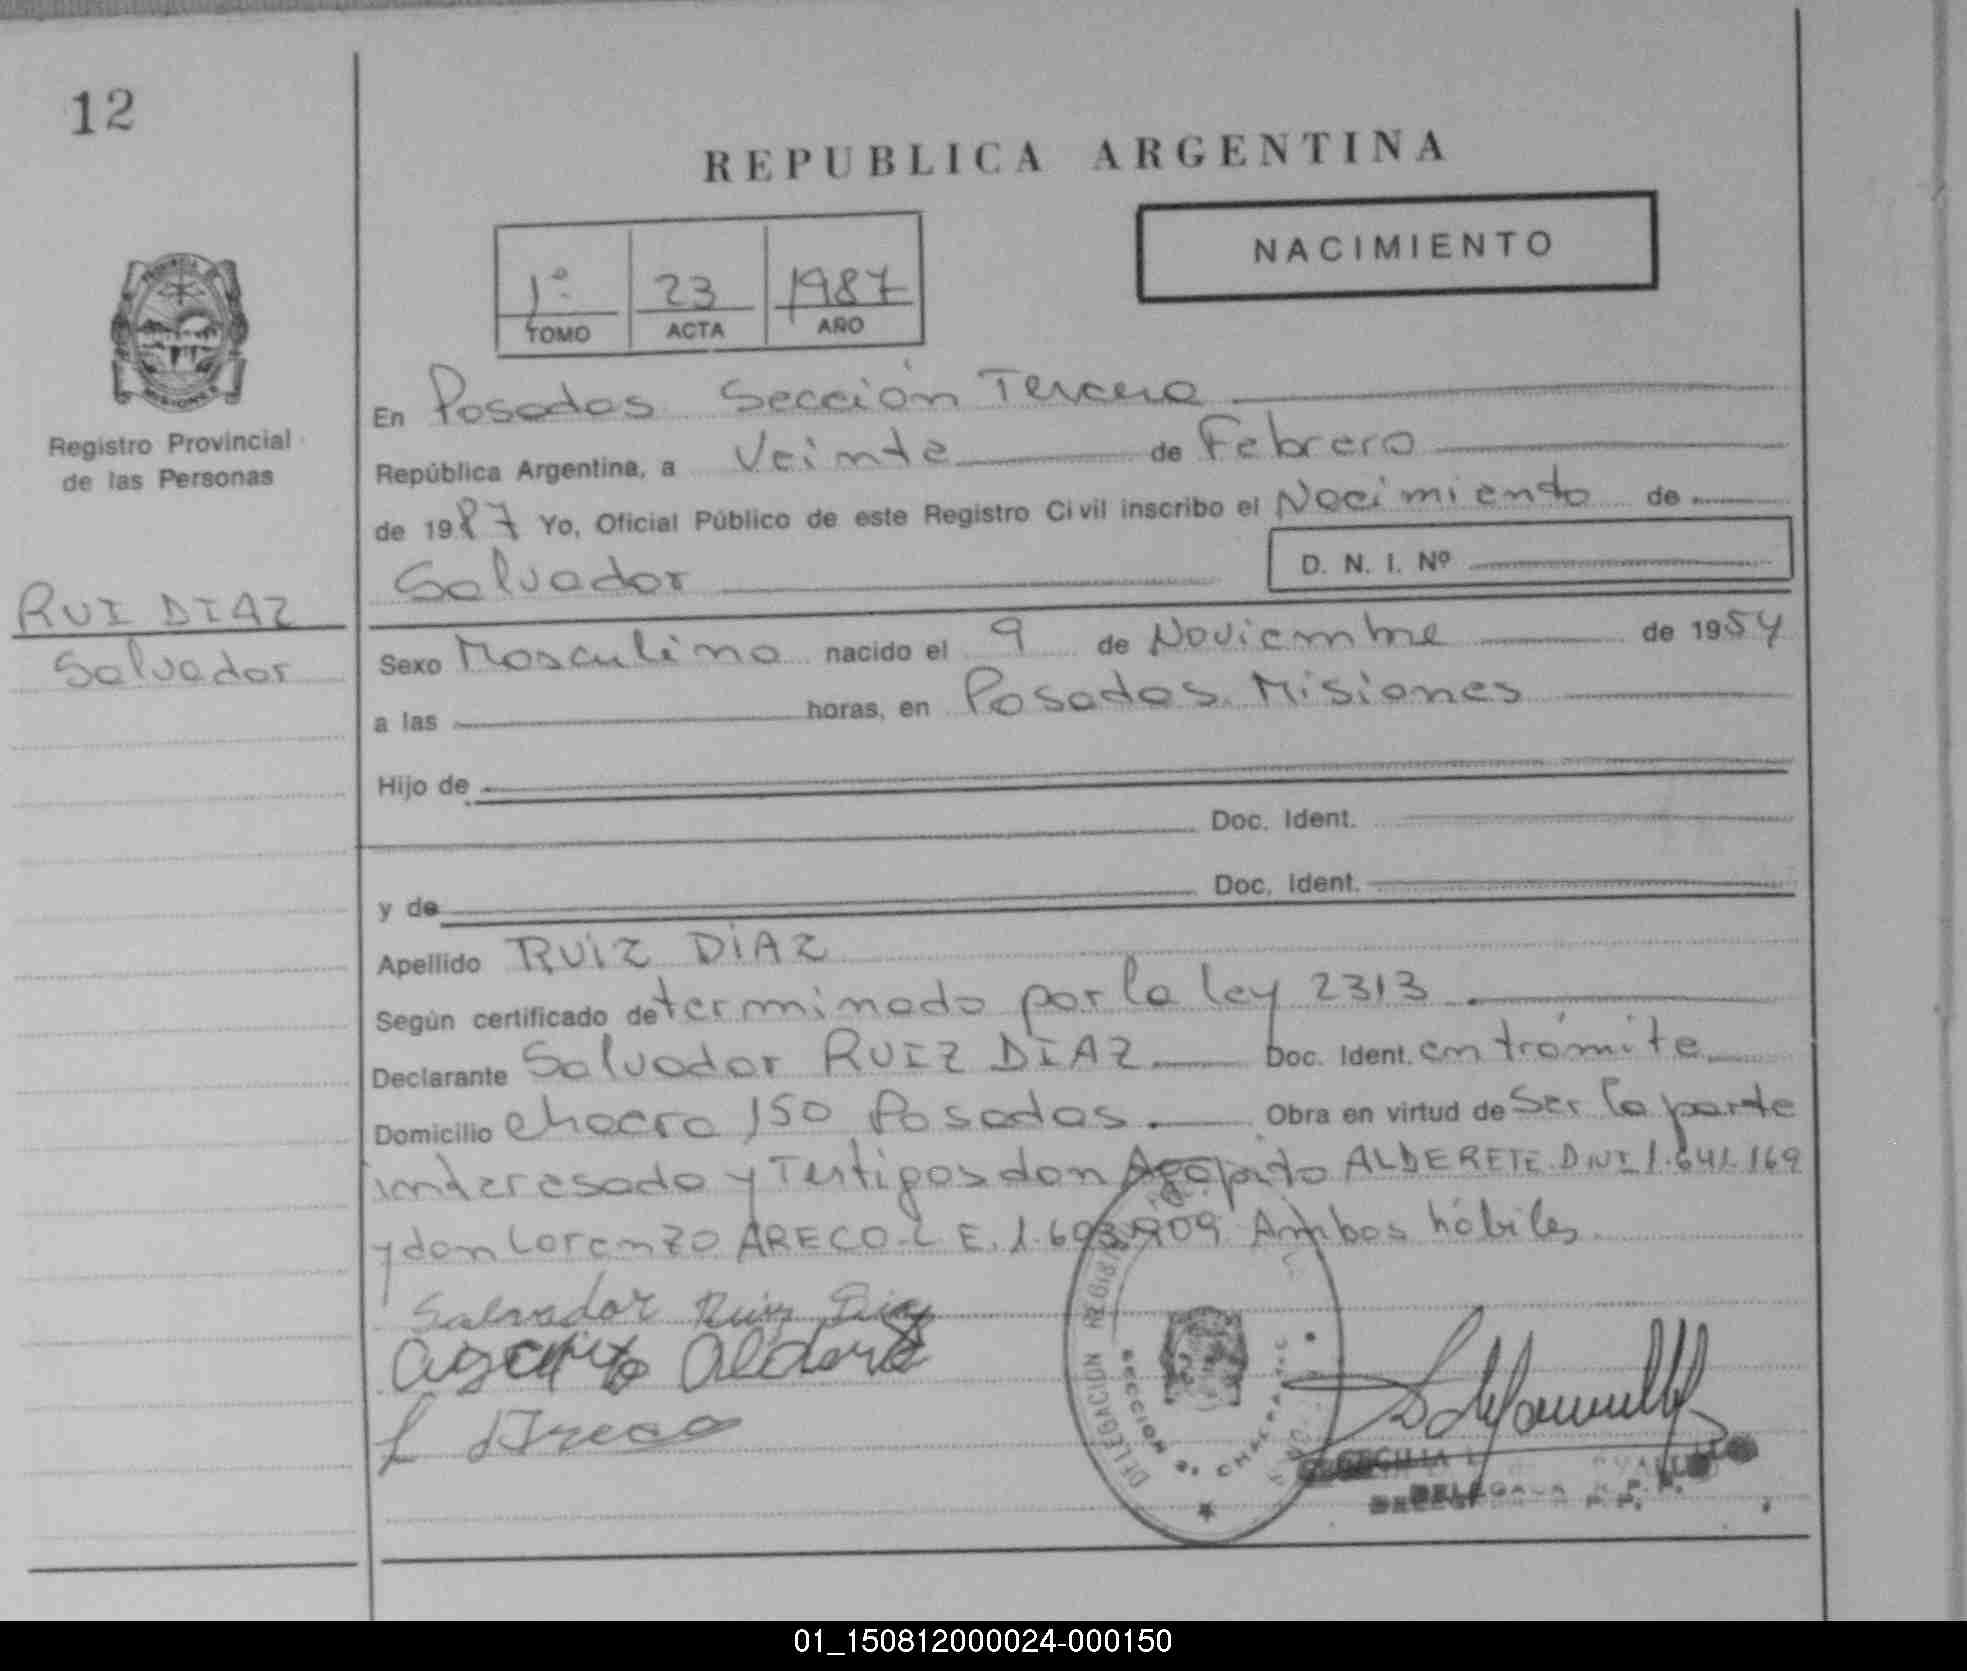 12
REPUBLICA ARGENTINA
NACIMIENTO
1º 23 1987
TOMO ACTA AÑO
PROVINCIA DE
MISIONES
Registro Provincial
de las Personas
RUI DIAZ
Salvador
En Posadas Sección Tercera
República Argentina, a Veinte de Febrero
de 1987 Yo, Oficial Público de este Registro Civil inscribo el Nacimiento de
Salvador D. N. I. Nº
Sexo Masculino nacido el 9 de Noviembre de 1954
a las horas, en Posadas. Misiones
Hijo de
Doc. Ident.
y de Doc. Ident.
Apellido RUIZ DIAZ
Según certificado determinado por la ley 2313.
Declarante Salvador RUIZ DIAZ Doc. Ident. en trámite
Domicilio chacra 150 Posadas. Obra en virtud de Ser la parte
interesada y Testigos don Agapito ALDERETE. DNI 1.641.169
y don Lorenzo ARECO. L E. 1.603.909 Ambos hábiles.
Salvador Ruiz Diaz
Agapito
L Areco
DELEGACION
SECCION 3a CHACRA
CECILIA L
DELEGADA R. P. P.
01_150812000024-000150